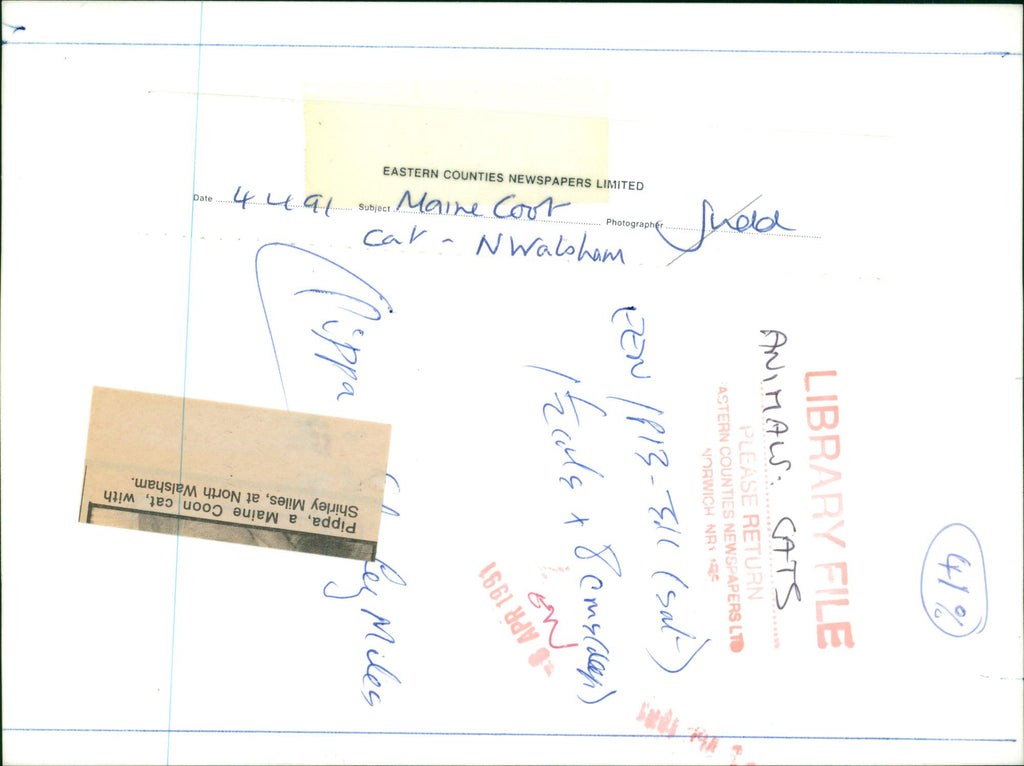 EASTERN COUNTIES NEWSPAPERS LIMITED
Date 4 4 91 Subject Maine Coot Photographer Judd
Cat - N Walsham
Pippa
Shirley Miles
Pippa, a Maine Coon cat, with
Shirley Miles, at North Walsham.
EEN
1½ cols x 8 cms (deep)
- 8 APR 1991
LIBRARY FILE
ANIMALS: CATS
PLEASE RETURN
ASTERN COUNTIES NEWSPAPERS LTD
NORWICH NR1
41%